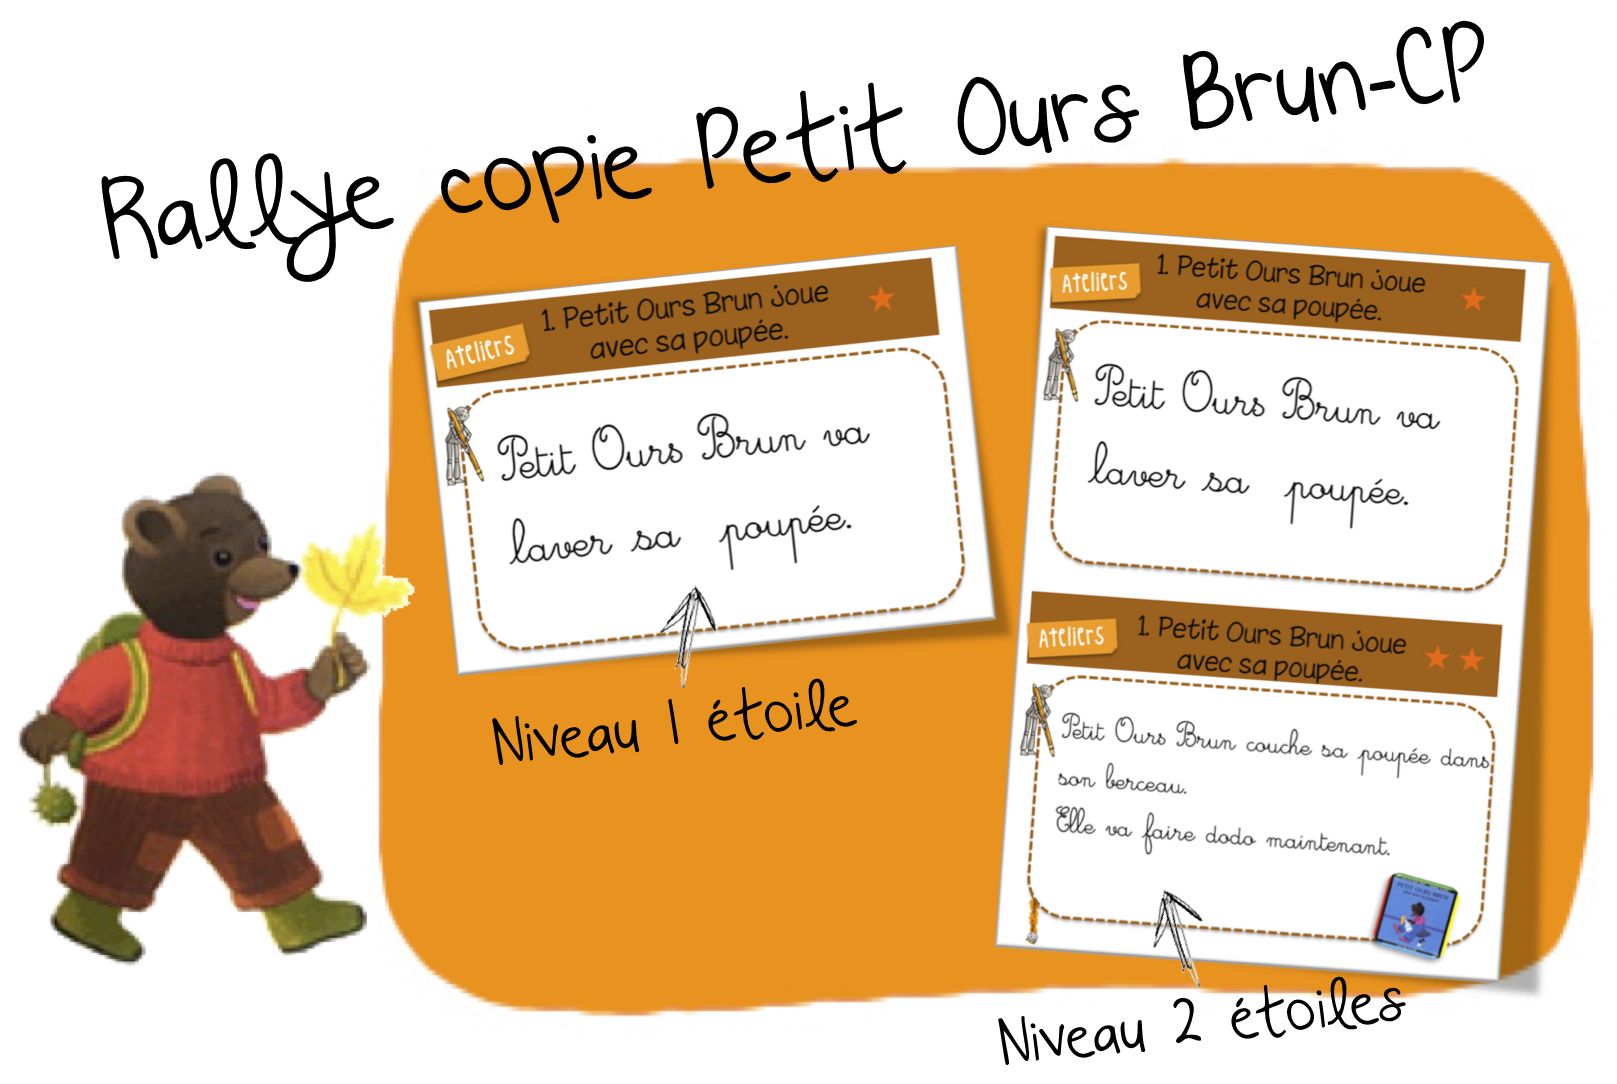 Rallye copie Petit Ours Brun-CP
Ateliers
1. Petit Ours Brun joue
avec sa poupée.
Petit Ours Brun va
laver sa poupée.
Niveau 1 étoile
Ateliers
1. Petit Ours Brun joue
avec sa poupée.
Petit Ours Brun va
laver sa poupée.
Ateliers
1. Petit Ours Brun joue
avec sa poupée.
Petit Ours Brun couche sa poupée dans
son berceau.
Elle va faire dodo maintenant.
PETIT OURS BRUN
Niveau 2 étoiles